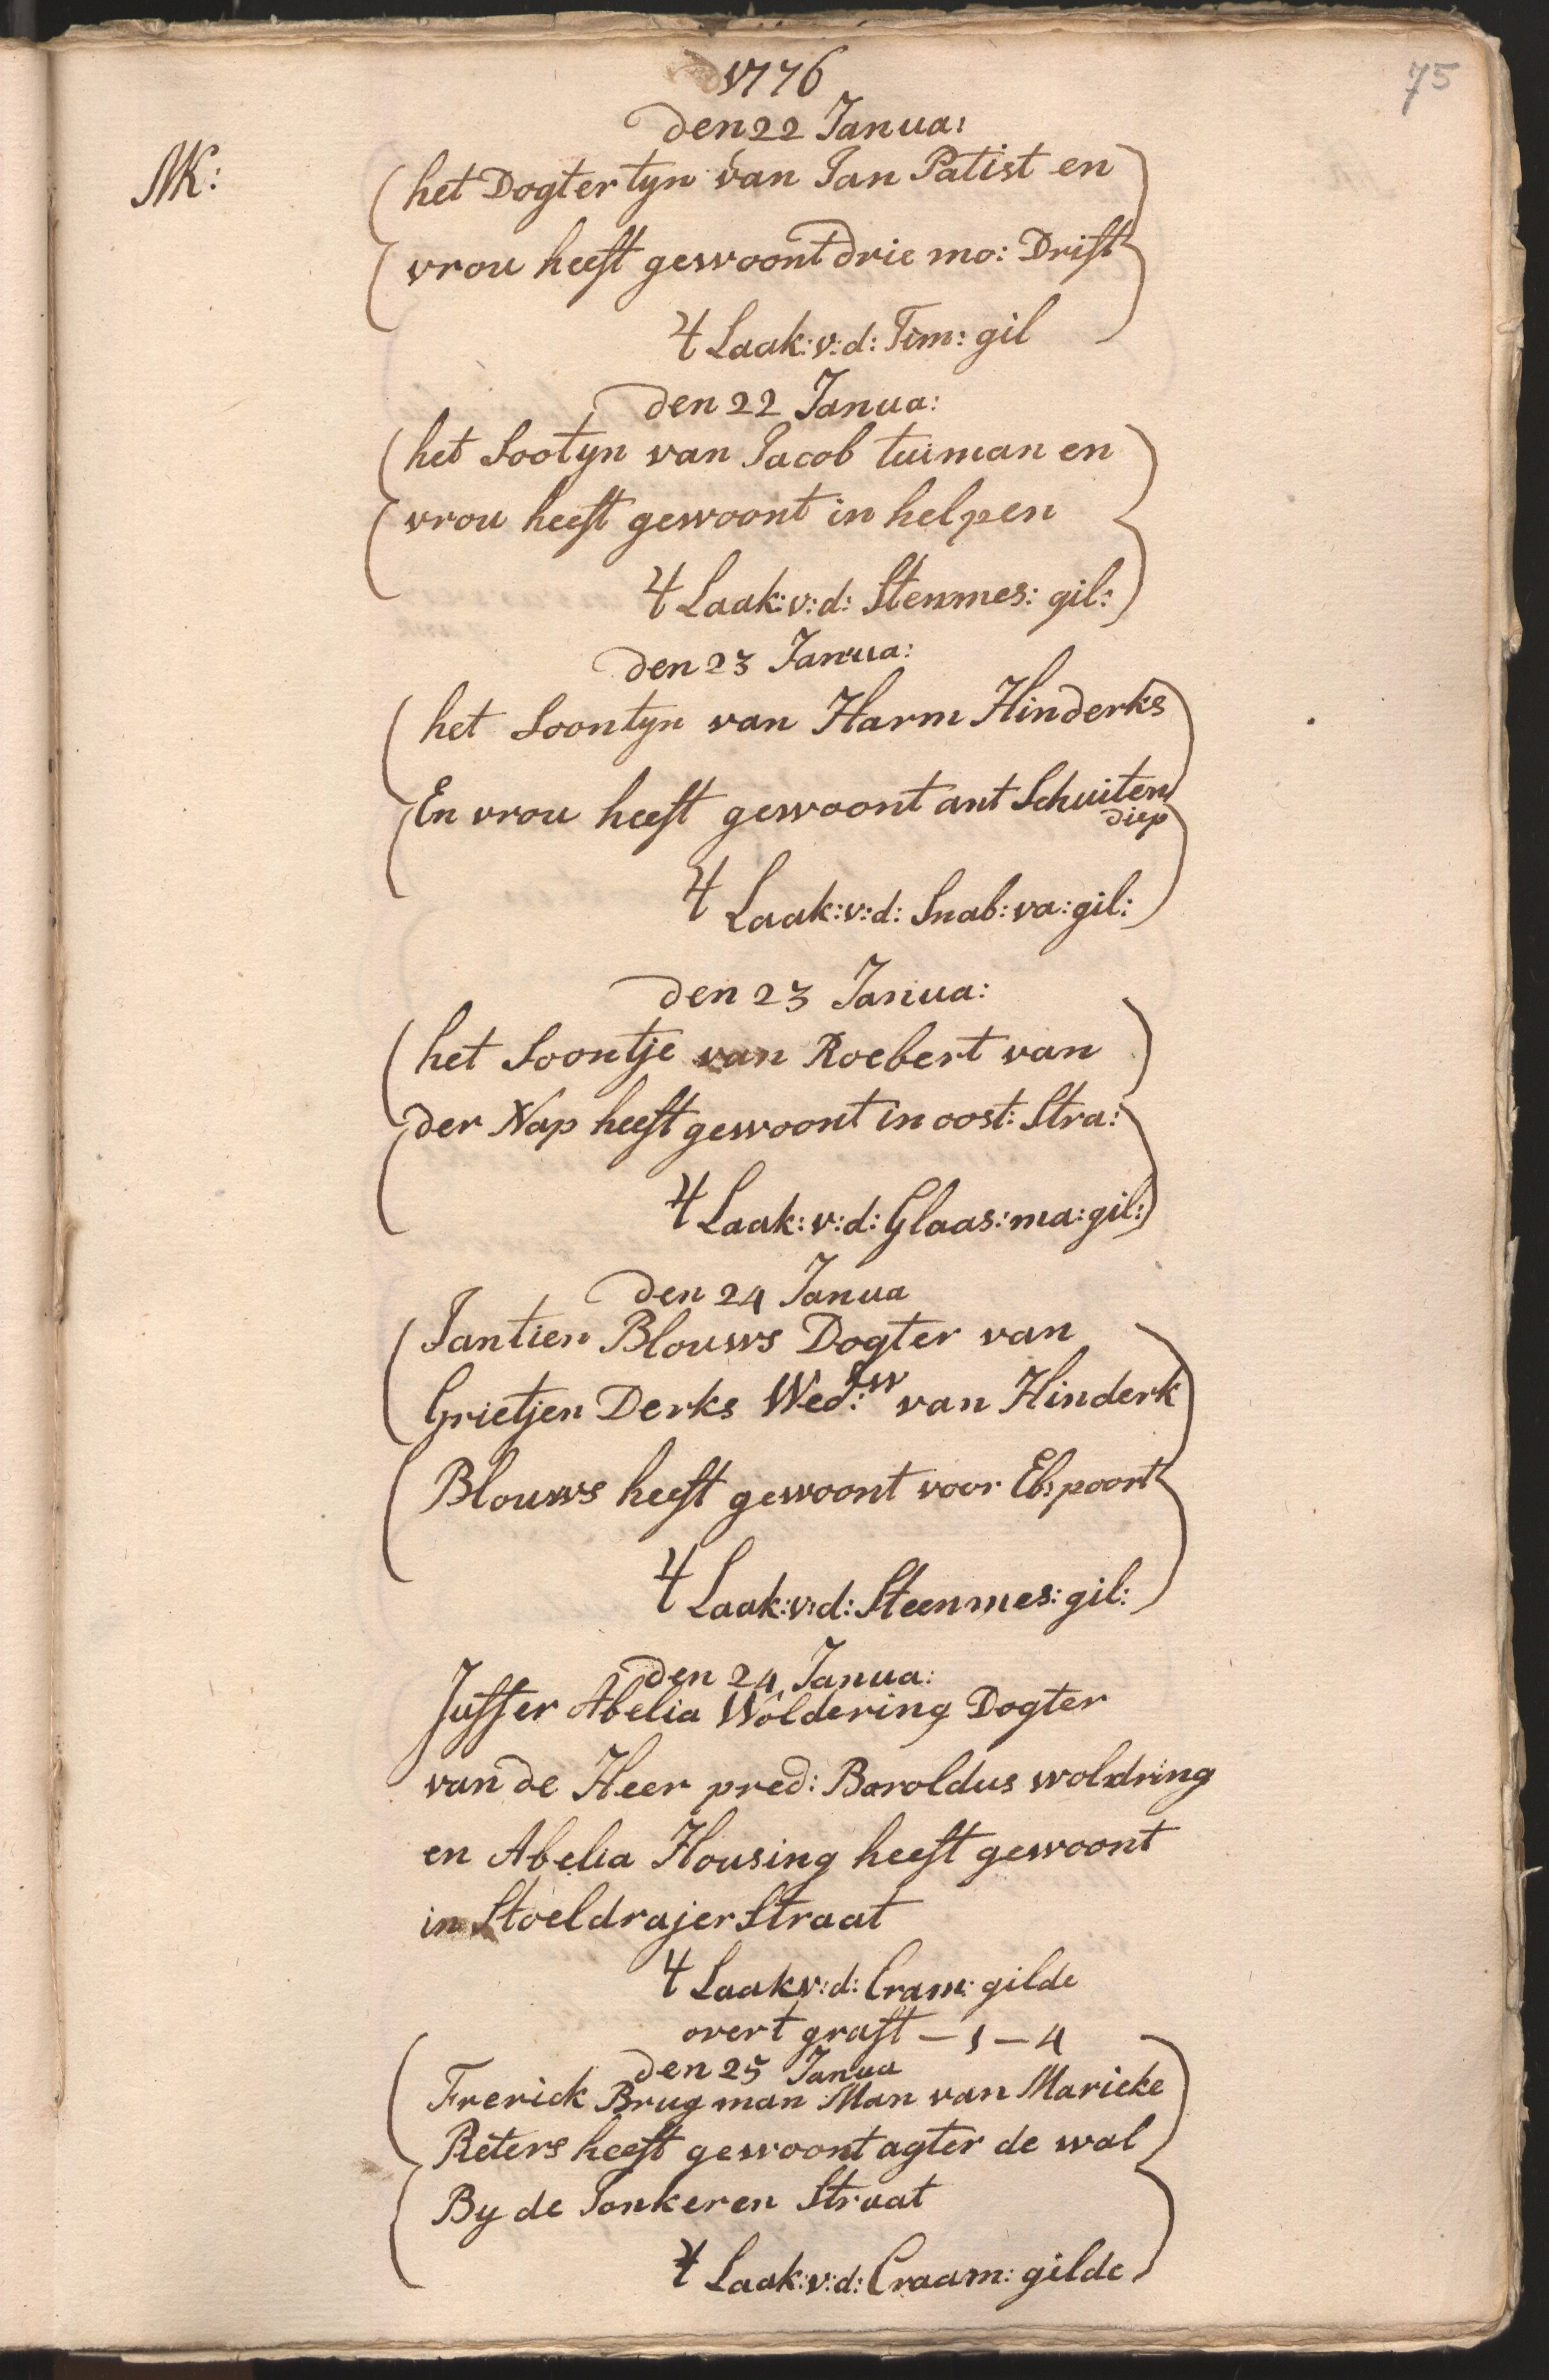 75
1776
den 22 Janua:
NK:
het Dogtertyn van Jan Patist en
vrou heeft gewoont drie mo: Drift
't Laak:v:d: Tim: gil
den 22 Janua:
het Sootyn van Jacob tuiman en
vrou heeft gewoont in helpen
't Laak:v:d: Stenmes: gil:
den 23 Janua:
het Soontyn van Harm Hinderks
En vrou heeft gewoont ant Schuiten
diep
't Laak:v:d: Snab:va:gil:
den 23 Janua:
het Soontje van Roebert van
der Nap heeft gewoont in oost: Stra:
't Laak:v:d: Glaas:ma:gil:
den 24 Janua
Jantien Blouws Dogter van
Grietjen Derks Wed:uw van Hinderk
Blouws heeft gewoont voor Eb:poort
't Laak:v:d: Steenmes: gil:
den 24 Janua:
Juffer Abelia Woldering Dogter
van de Heer pred: Baroldus woldring
en Abelia Housing heeft gewoont
in Stoeldrajer Straat
't Laak v:d: Cram: gilde
overt graft – 1 – 4
den 25 Janua
Frerick Brugman Man van Marieke
Peters heeft gewoont agter de wal
By de Jonkeren Straat
't Laak:v:d: Craam: gilde